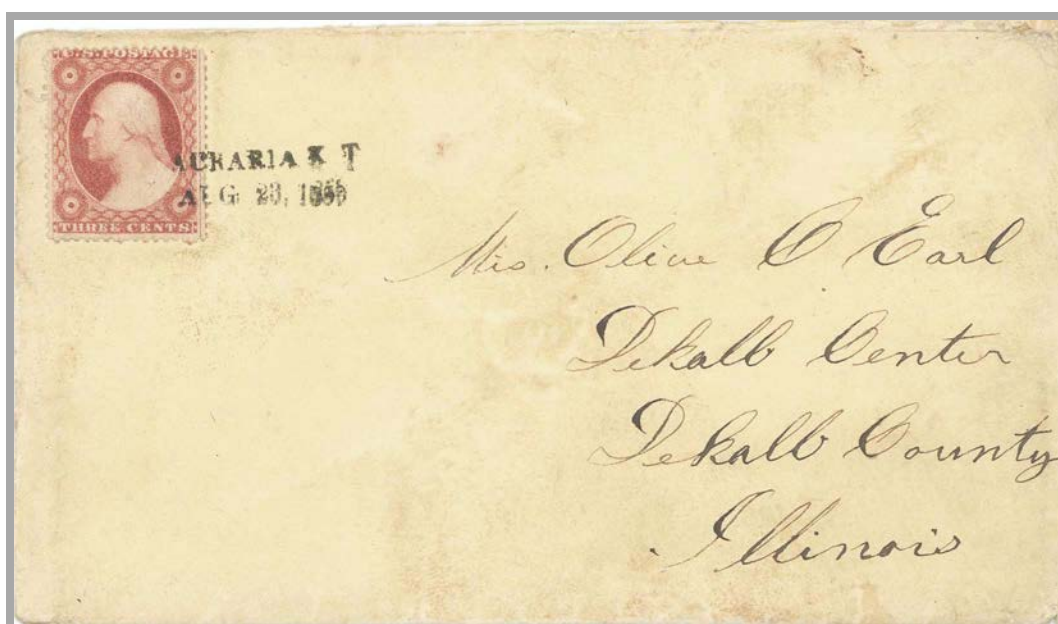 U.S. POSTAGE
THREE CENTS
AURARIA K T
AUG 23,
Mrs. Olive C Earl
Dekalb Center
Dekalb County
Illinois